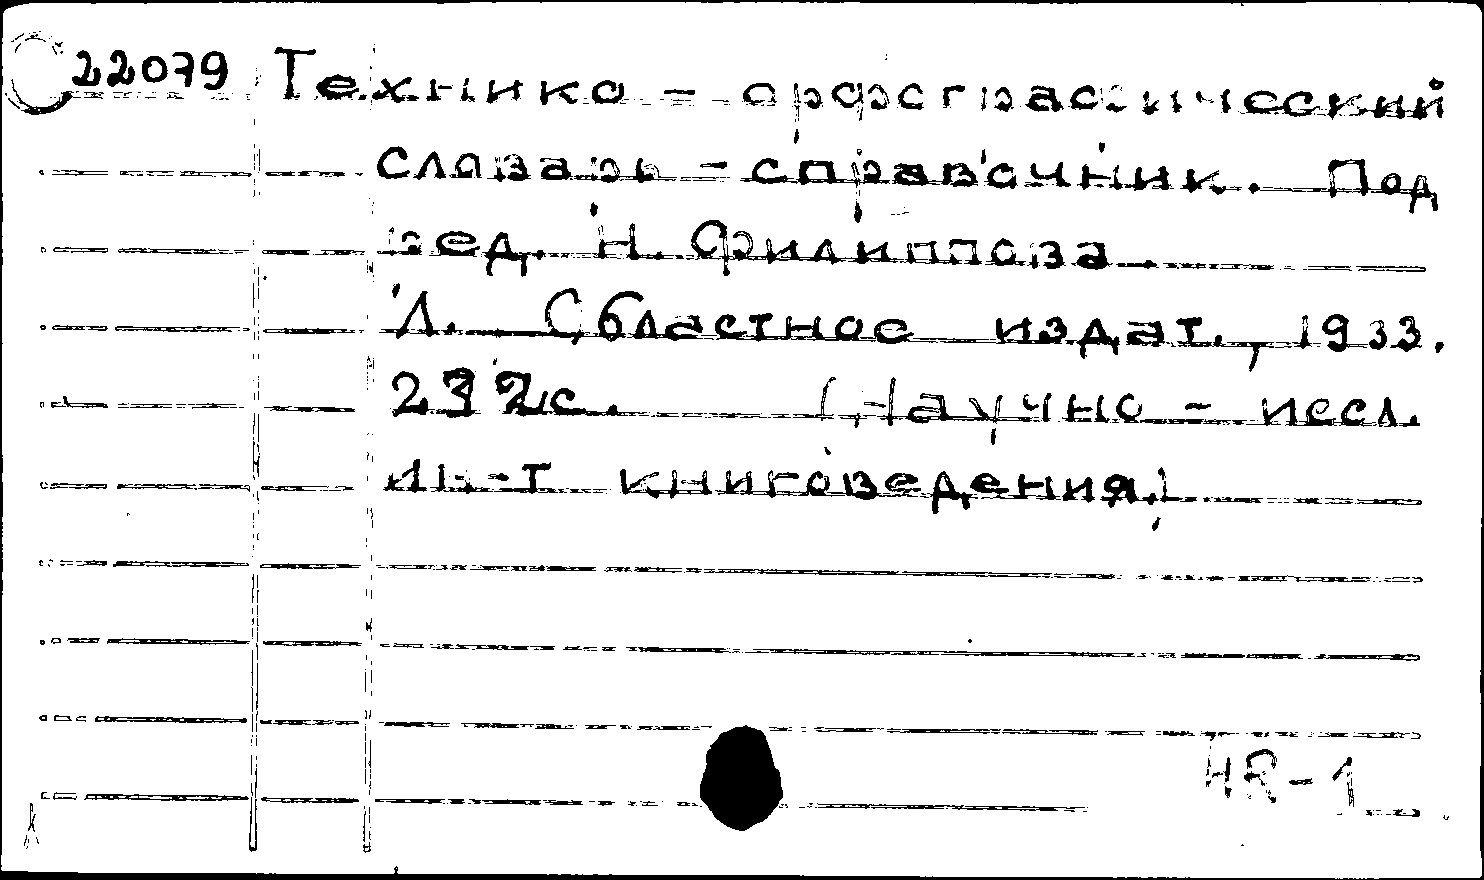 C 22079 Технико - орфографический
словарь - справочник. Под
ред. Н. Филиппова.
Л. Областное издат., 1933.
232 с. (Научно - иссл.
ин-т книговедения.)
4R-1